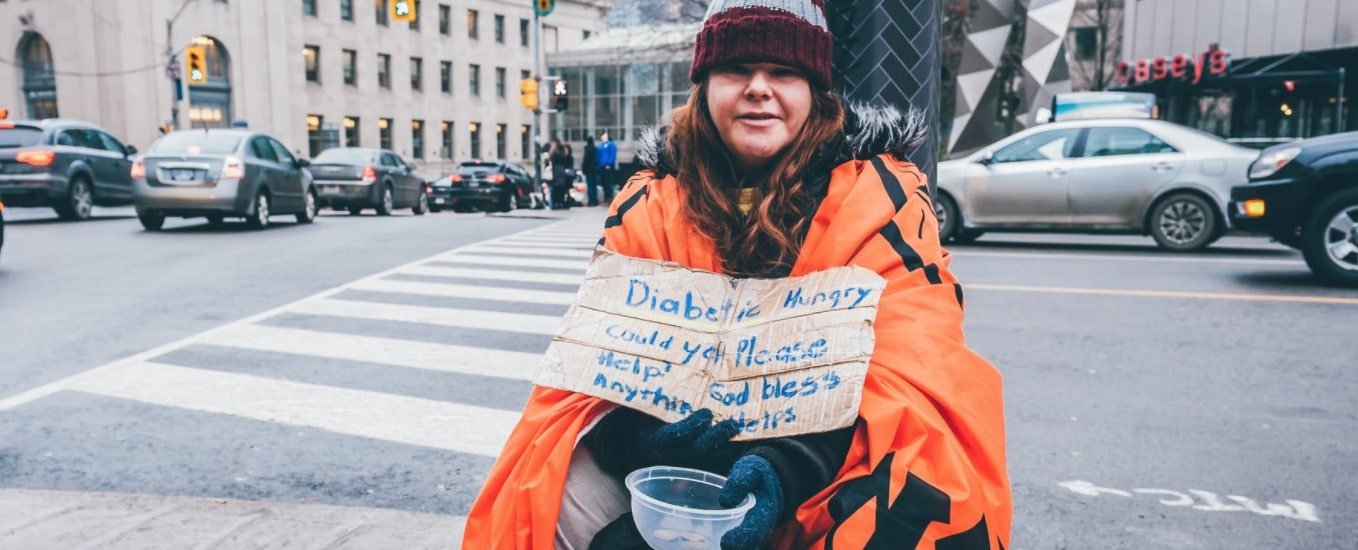 casey's
Diabetic Hungry
Could you Please
Help? God bless
Anything Helps